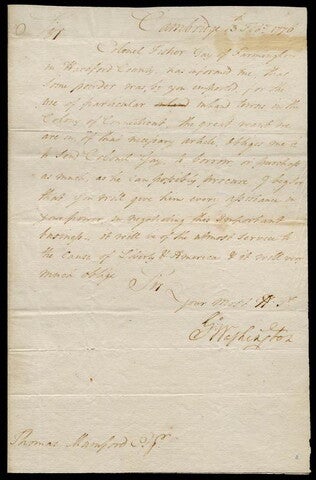 Cambridge 13 Feby 1776
Sir
Colonel Fisher Gay of Farmington
in Hartford County, has informed me, that
some powder was, by you imported, for the
use of particular inland inland towns in the
Colony of Connecticut, the great want we
are in, of that necessary article, obliges me
to send Colonel Gay, to borrow or purchase
as much, as he can possibly procure, I beg
that you will give him every assistance in
your power, in negotiating this important
business, it will be of the utmost service to
the Cause of Liberty & America & it will very
much oblige
Sir
your Most H St
Go Washington
Thomas Mumford Esqr